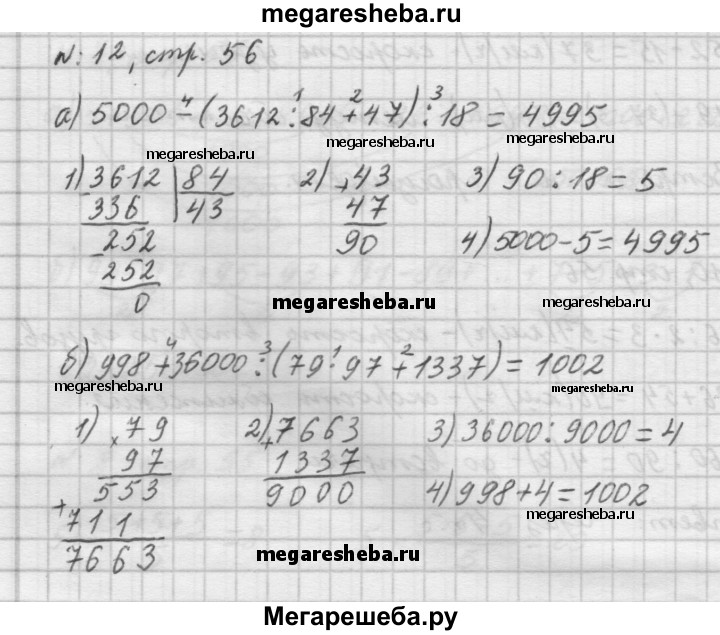 megaresheba.ru
N: 12, стр. 56
а) 5000 - (3612 : 84 + 47) : 18 = 4995
4 1 2 3
megaresheba.ru megaresheba.ru megaresheba.ru
1) 3612 | 84
336 | 43
- 252
252
0
2) + 43
47
90
3) 90 : 18 = 5
4) 5000 - 5 = 4995
megaresheba.ru megaresheba.ru
б) 998 + 36000 : (79 · 97 + 1337) = 1002
4 3 1 2
megaresheba.ru megaresheba.ru
1) × 79
97
+ 553
711
7663
2) + 7663
1337
9000
3) 36000 : 9000 = 4
4) 998 + 4 = 1002
megaresheba.ru
megaresheba.ru
Мегарешеба.ру